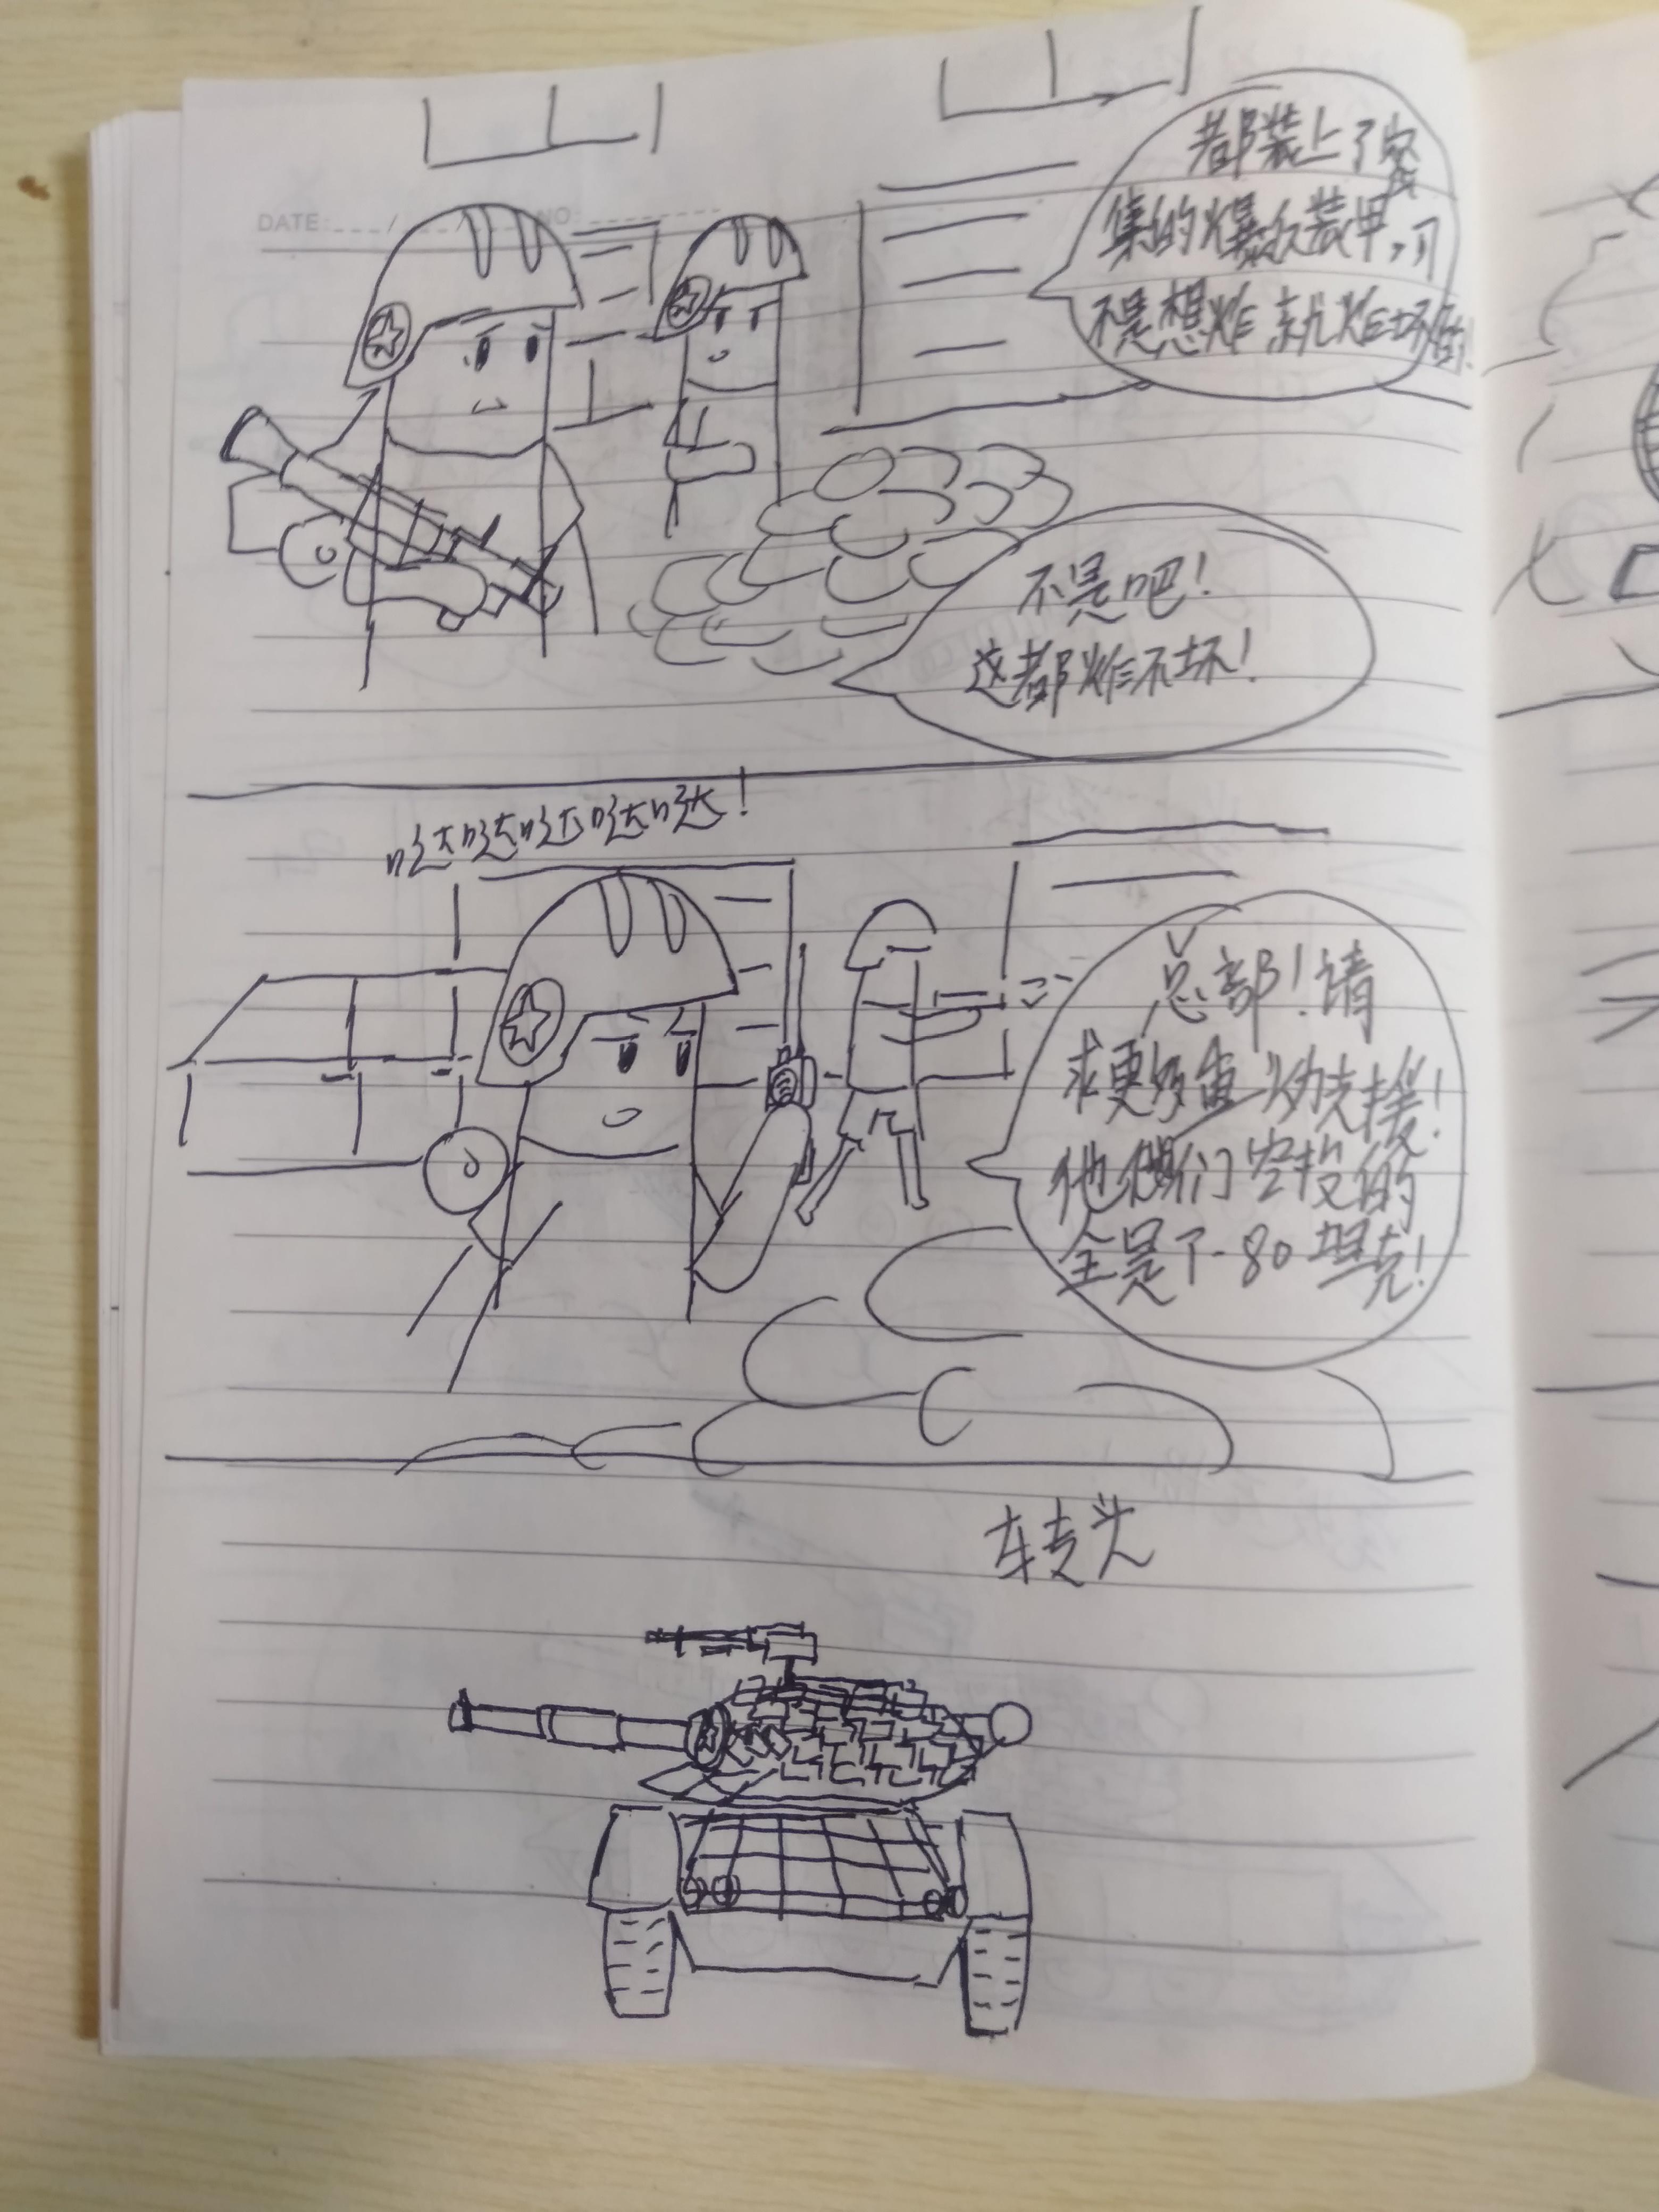 DATE: / / NO:
都装上了密
集的爆反装甲,可
不是想炸就炸坏的!
不是吧!
这都炸不坏!
哒哒哒哒哒!
总部!请
求更多重火力支援!
他们空投的
全是T-80坦克!
车专头